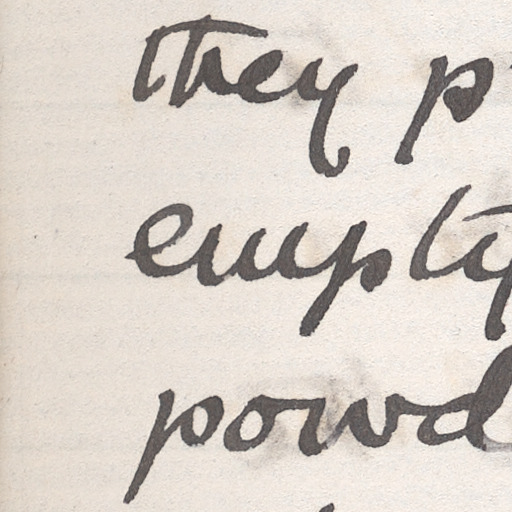 they p
empty
powd